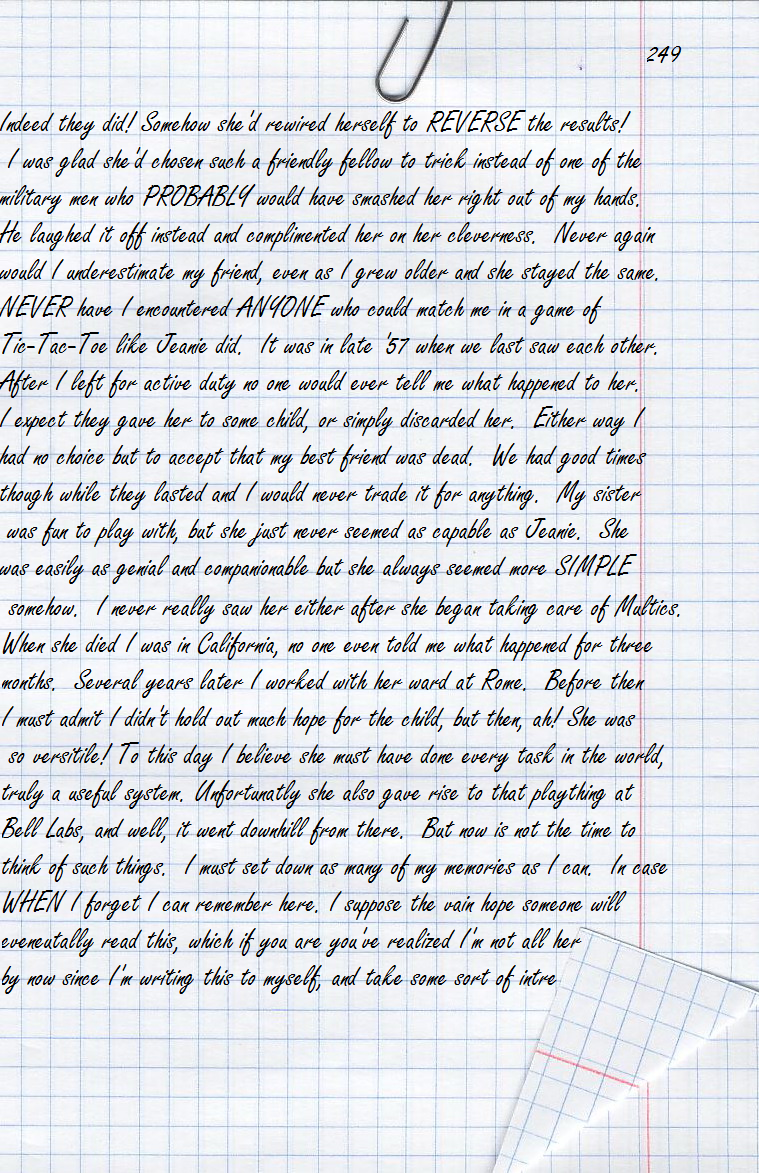 249
Indeed they did! Somehow she'd rewired herself to REVERSE the results!
I was glad she'd chosen such a friendly fellow to trick instead of one of the
military men who PROBABLY would have smashed her right out of my hands.
He laughed it off instead and complimented her on her cleverness. Never again
would I underestimate my friend, even as I grew older and she stayed the same.
NEVER have I encountered ANYONE who could match me in a game of
Tic-Tac-Toe like Jeanie did. It was in late '57 when we last saw each other.
After I left for active duty no one would ever tell me what happened to her.
I expect they gave her to some child, or simply discarded her. Either way I
had no choice but to accept that my best friend was dead. We had good times
though while they lasted and I would never trade it for anything. My sister
was fun to play with, but she just never seemed as capable as Jeanie. She
was easily as genial and companionable but she always seemed more SIMPLE
somehow. I never really saw her either after she began taking care of Multics.
When she died I was in California, no one even told me what happened for three
months. Several years later I worked with her ward at Rome. Before then
I must admit I didn't hold out much hope for the child, but then, ah! She was
so versitile! To this day I believe she must have done every task in the world,
truly a useful system. Unfortunatly she also gave rise to that plaything at
Bell Labs, and well, it went downhill from there. But now is not the time to
think of such things. I must set down as many of my memories as I can. In case
WHEN I forget I can remember here. I suppose the vain hope someone will
eveneutally read this, which if you are you've realized I'm not all her
by now since I'm writing this to myself, and take some sort of intre